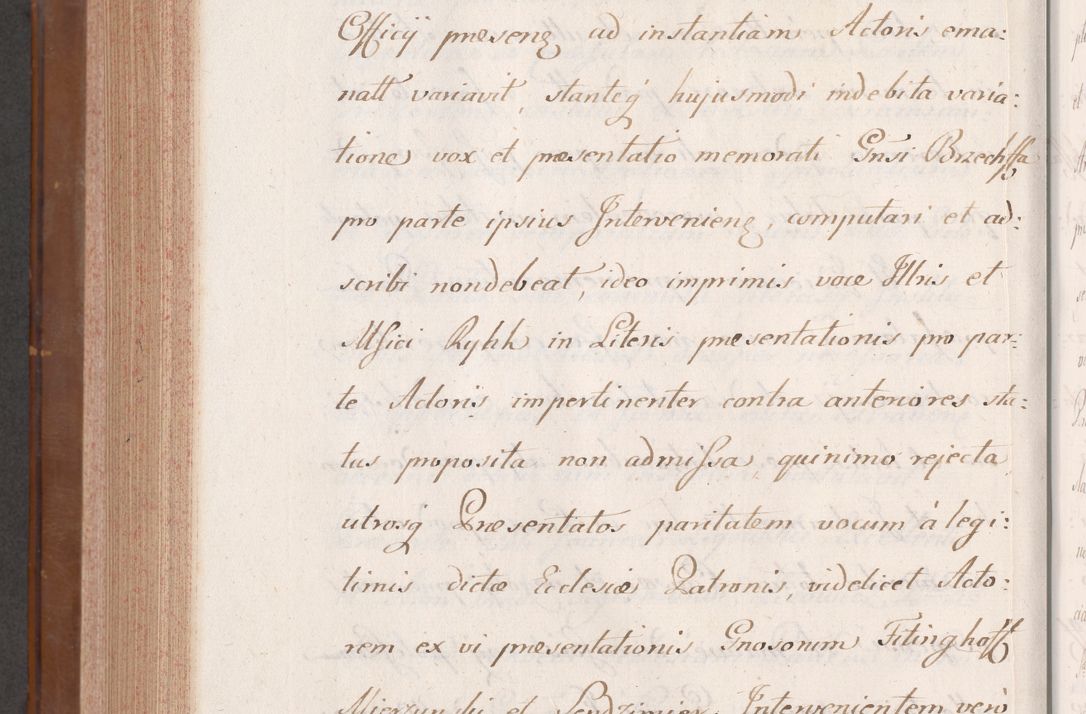 Officij præsenȩ ad instantiam Actoris ema:
natt variavit, stanteq́ hujusmodi indebita varia:
tione vox et præsentatio memorati Gnsi Brzechffa
pro parte ipsius Intervenienȩ, computari et ad:
scribi nondebeat, ideo imprimis voce Illris et
Mfici Rykk in Literis præsentationis pro par:
te Actoris impertinenter contra anteriores sta:
tus proposita non admissa, quinimo rejecta
utrosq́ Præsentatos paritatem vocum à legi:
timis dictæ Ecclesiæ Patronis, videlicet Acto:
rem ex vi præsentationis Gnosorum Fitinghoff
et Sendzimier, Intervenientem verò